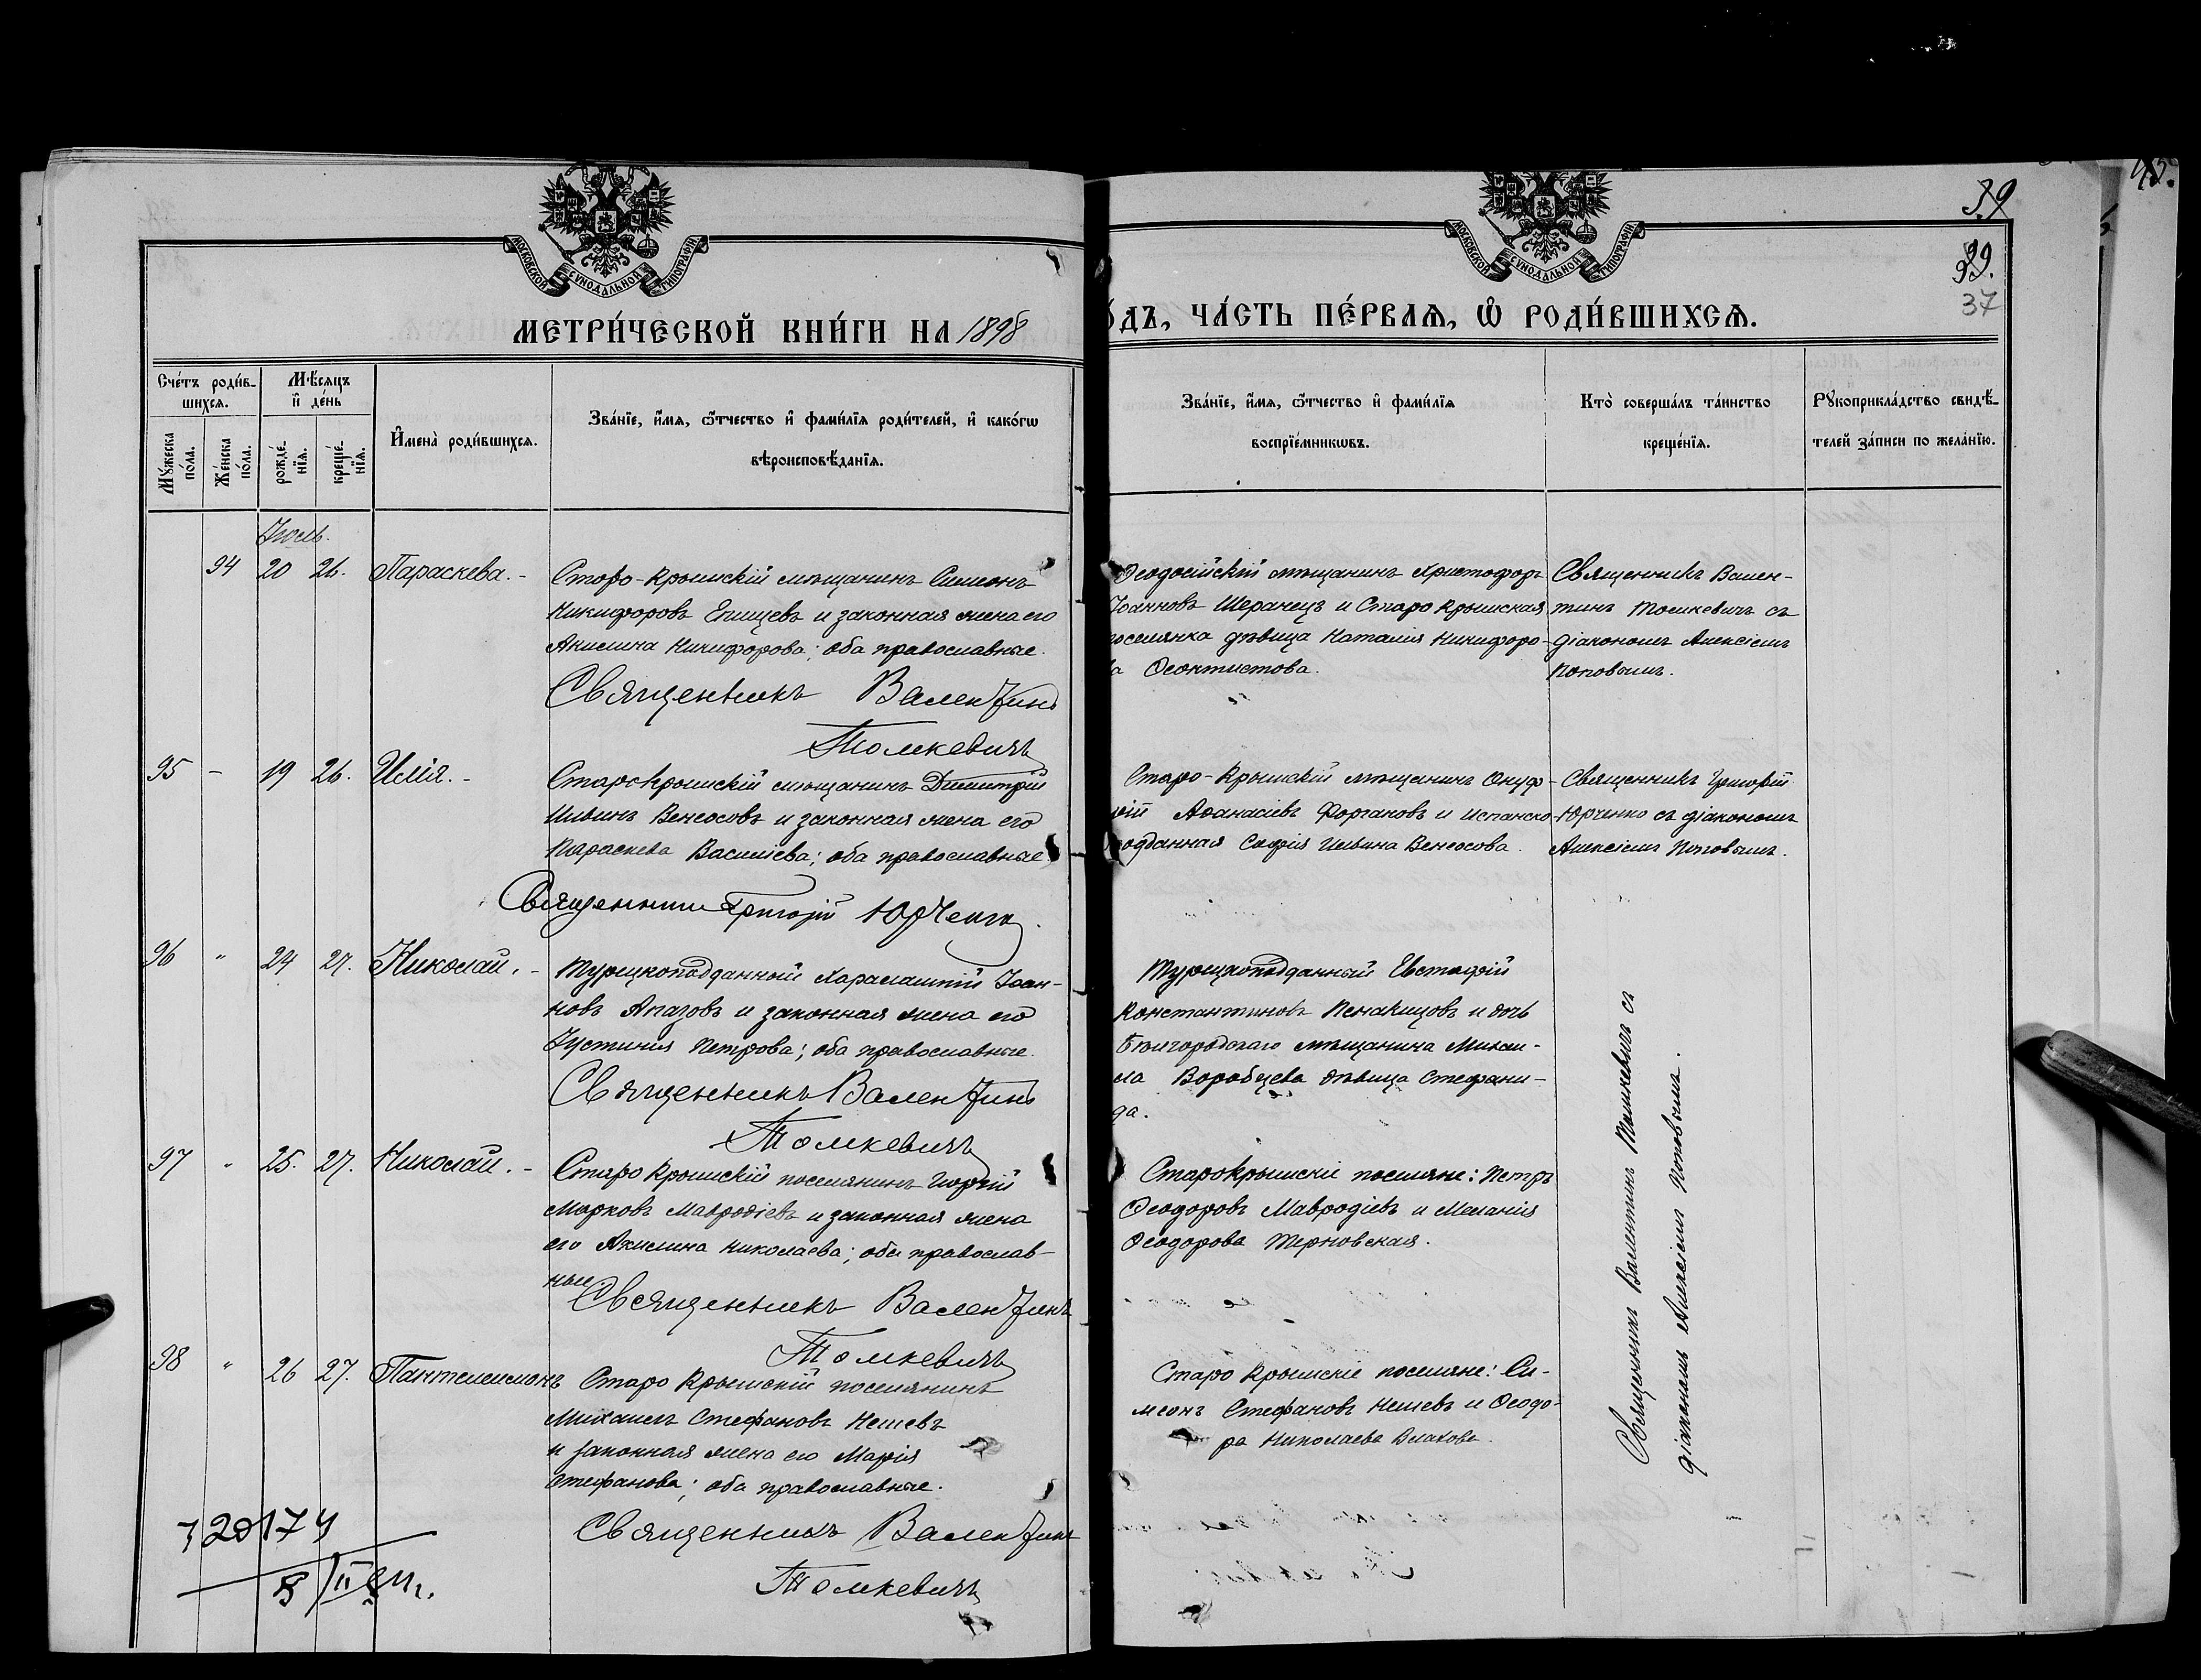 45.
39
39.
37
МОСКОВСКОЙ СѴНОДАЛЬНОЙ ТИПОГРАФІИ
МОСКОВСКОЙ СѴНОДАЛЬНОЙ ТИПОГРАФІИ
МЕТРИ́ЧЕСКОЙ КНИ́ГИ НА 1898
О́ДЪ, ЧА́СТЬ ПЕ́РВАѦ, Ѡ҆ РОДИ́ВШИХСѦ.
Сче́тъ роди́в-
шихсѧ.
Мѣ́сѧцъ
и҆ де́нь
Мꙋ́жеска
по́ла.
Же́нска
по́ла.
рожде́-
нїѧ.
креще́-
нїѧ.
И҆мена̀ роди́вшихсѧ.
Зва́нїе, и҆́мѧ, ѻ҆́тчество и҆ фами́лїѧ роди́телей, и҆ како́гѡ
вѣроисповѣ́данїѧ.
Зва́нїе, и҆́мѧ, ѻ҆́тчество и҆ фами́лїѧ
воспрїе́мникѡвъ.
Кто̀ соверша́лъ та́инство
креще́нїѧ.
Рꙋкоприкла́дство свидѣ́-
телей за́писи по жела́нїю.
Іюль.
94 20 26. Параскева. -
Старо-Крымскій мѣщанинъ Симеонъ
Никифоровъ Епищевъ и законная жена его
Акилина Никифорова; оба православные.
Священникъ Валентинъ
Томкевичъ
Ѳеодосійскій мѣщанинъ Христофоръ
Іоанновъ Шеранецъ и Старо Крымская
поселянка дѣвица Наталія Никифоро-
ва Ѳеоктистова.
Священникъ Вален-
тинъ Томкевичъ съ
діакономъ Алексіемъ
Поповымъ.
95 - 19 26. Илія. -
Старокрымскій мѣщанинъ Димитрій
Ильинъ Венсосовъ и законная жена его
Параскева Василіева; оба православные.
Священникъ Григорій Юрченко.
Старо-Крымскій мѣщанинъ Онуф-
рій Аѳанасіевъ Форгановъ и испанско-
подданная Софія Ильина Венсосова.
Священникъ Григорій
Юрченко съ діакономъ
Алексіемъ Поповымъ.
96 " 24 27. Николай. -
Турецкоподданный Харалампій Іоан-
новъ Апазовъ и законная жена его
Іустинія Петрова; оба православные.
Священникъ Валентинъ
Томкевичъ
Турецкоподданный Евстафій
Константиновъ Пенакицовъ и дочь
Бѣлгородскаго мѣщанина Михаи-
ла Воробцева дѣвица Стефани-
да.
97 " 25. 27. Николай. -
Старо Крымскій поселянинъ Георгій
Марковъ Мавродіевъ и законная жена
его Акилина Николаева; оба православ-
ные.
Священникъ Валентинъ
Томкевичъ
Старокрымскіе поселяне: Петръ
Ѳеодоровъ Мавродіевъ и Меланія
Ѳеодорова Терновская.
98 " 26 27. Пантелеимонъ
Старо Крымскій поселянинъ
Михаилъ Стефановъ Нешевъ
и законная жена его Марія
Стефанова; оба православные.
Священникъ Валентинъ
Томкевичъ
Старо Крымскіе поселяне: Си-
меонъ Стефановъ Нешевъ и Ѳеодо-
ра Николаева Влахова.
Священникъ Валентинъ Томкевичъ съ
діакономъ Алексіемъ Поповымъ.